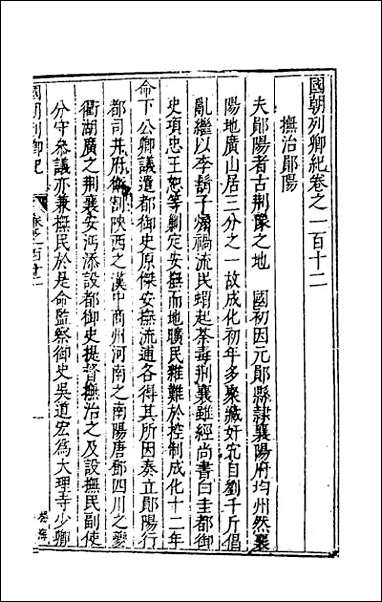 國朝列卿紀卷之一百十二
撫治鄖陽
夫鄖陽者古荆豫之地　國初因元鄖縣隸襄陽府均州然襄
陽地廣山居三分之一故成化初年多聚藏奸宄自劉千斤倡
亂繼以李鬍子煽禍流民蝟起荼毒荆襄雖經尚書白圭都御
史項忠王恕等剿定安撫而地曠民雜難於控制成化十二年
命下公卿議遣都御史原傑安撫流逋各得其所因奏立鄖陽行
都司并府衛割陝西之漢中商州河南之南陽唐鄧四川之夔
衢湖廣之荆襄安沔添設都御史提督撫治之及設撫民副使
分守參議亦兼撫民於是命監察御史吳道宏為大理寺少卿
國朝列卿紀
卷之一百十二
一